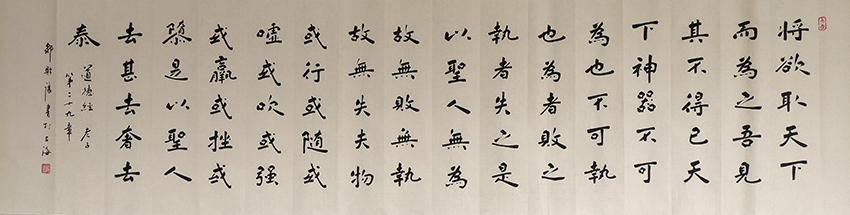 将欲取天下
而為之吾見
其不得已天
下神器不可
為也不可執
也為者敗之
執者失之是
以聖人無為
故無敗無執
故無失夫物
或行或随或
嘘或吹或强
或羸或挫或
隳是以聖人
去甚去奢去
泰
道德經 老子
第二十九章
書於上海